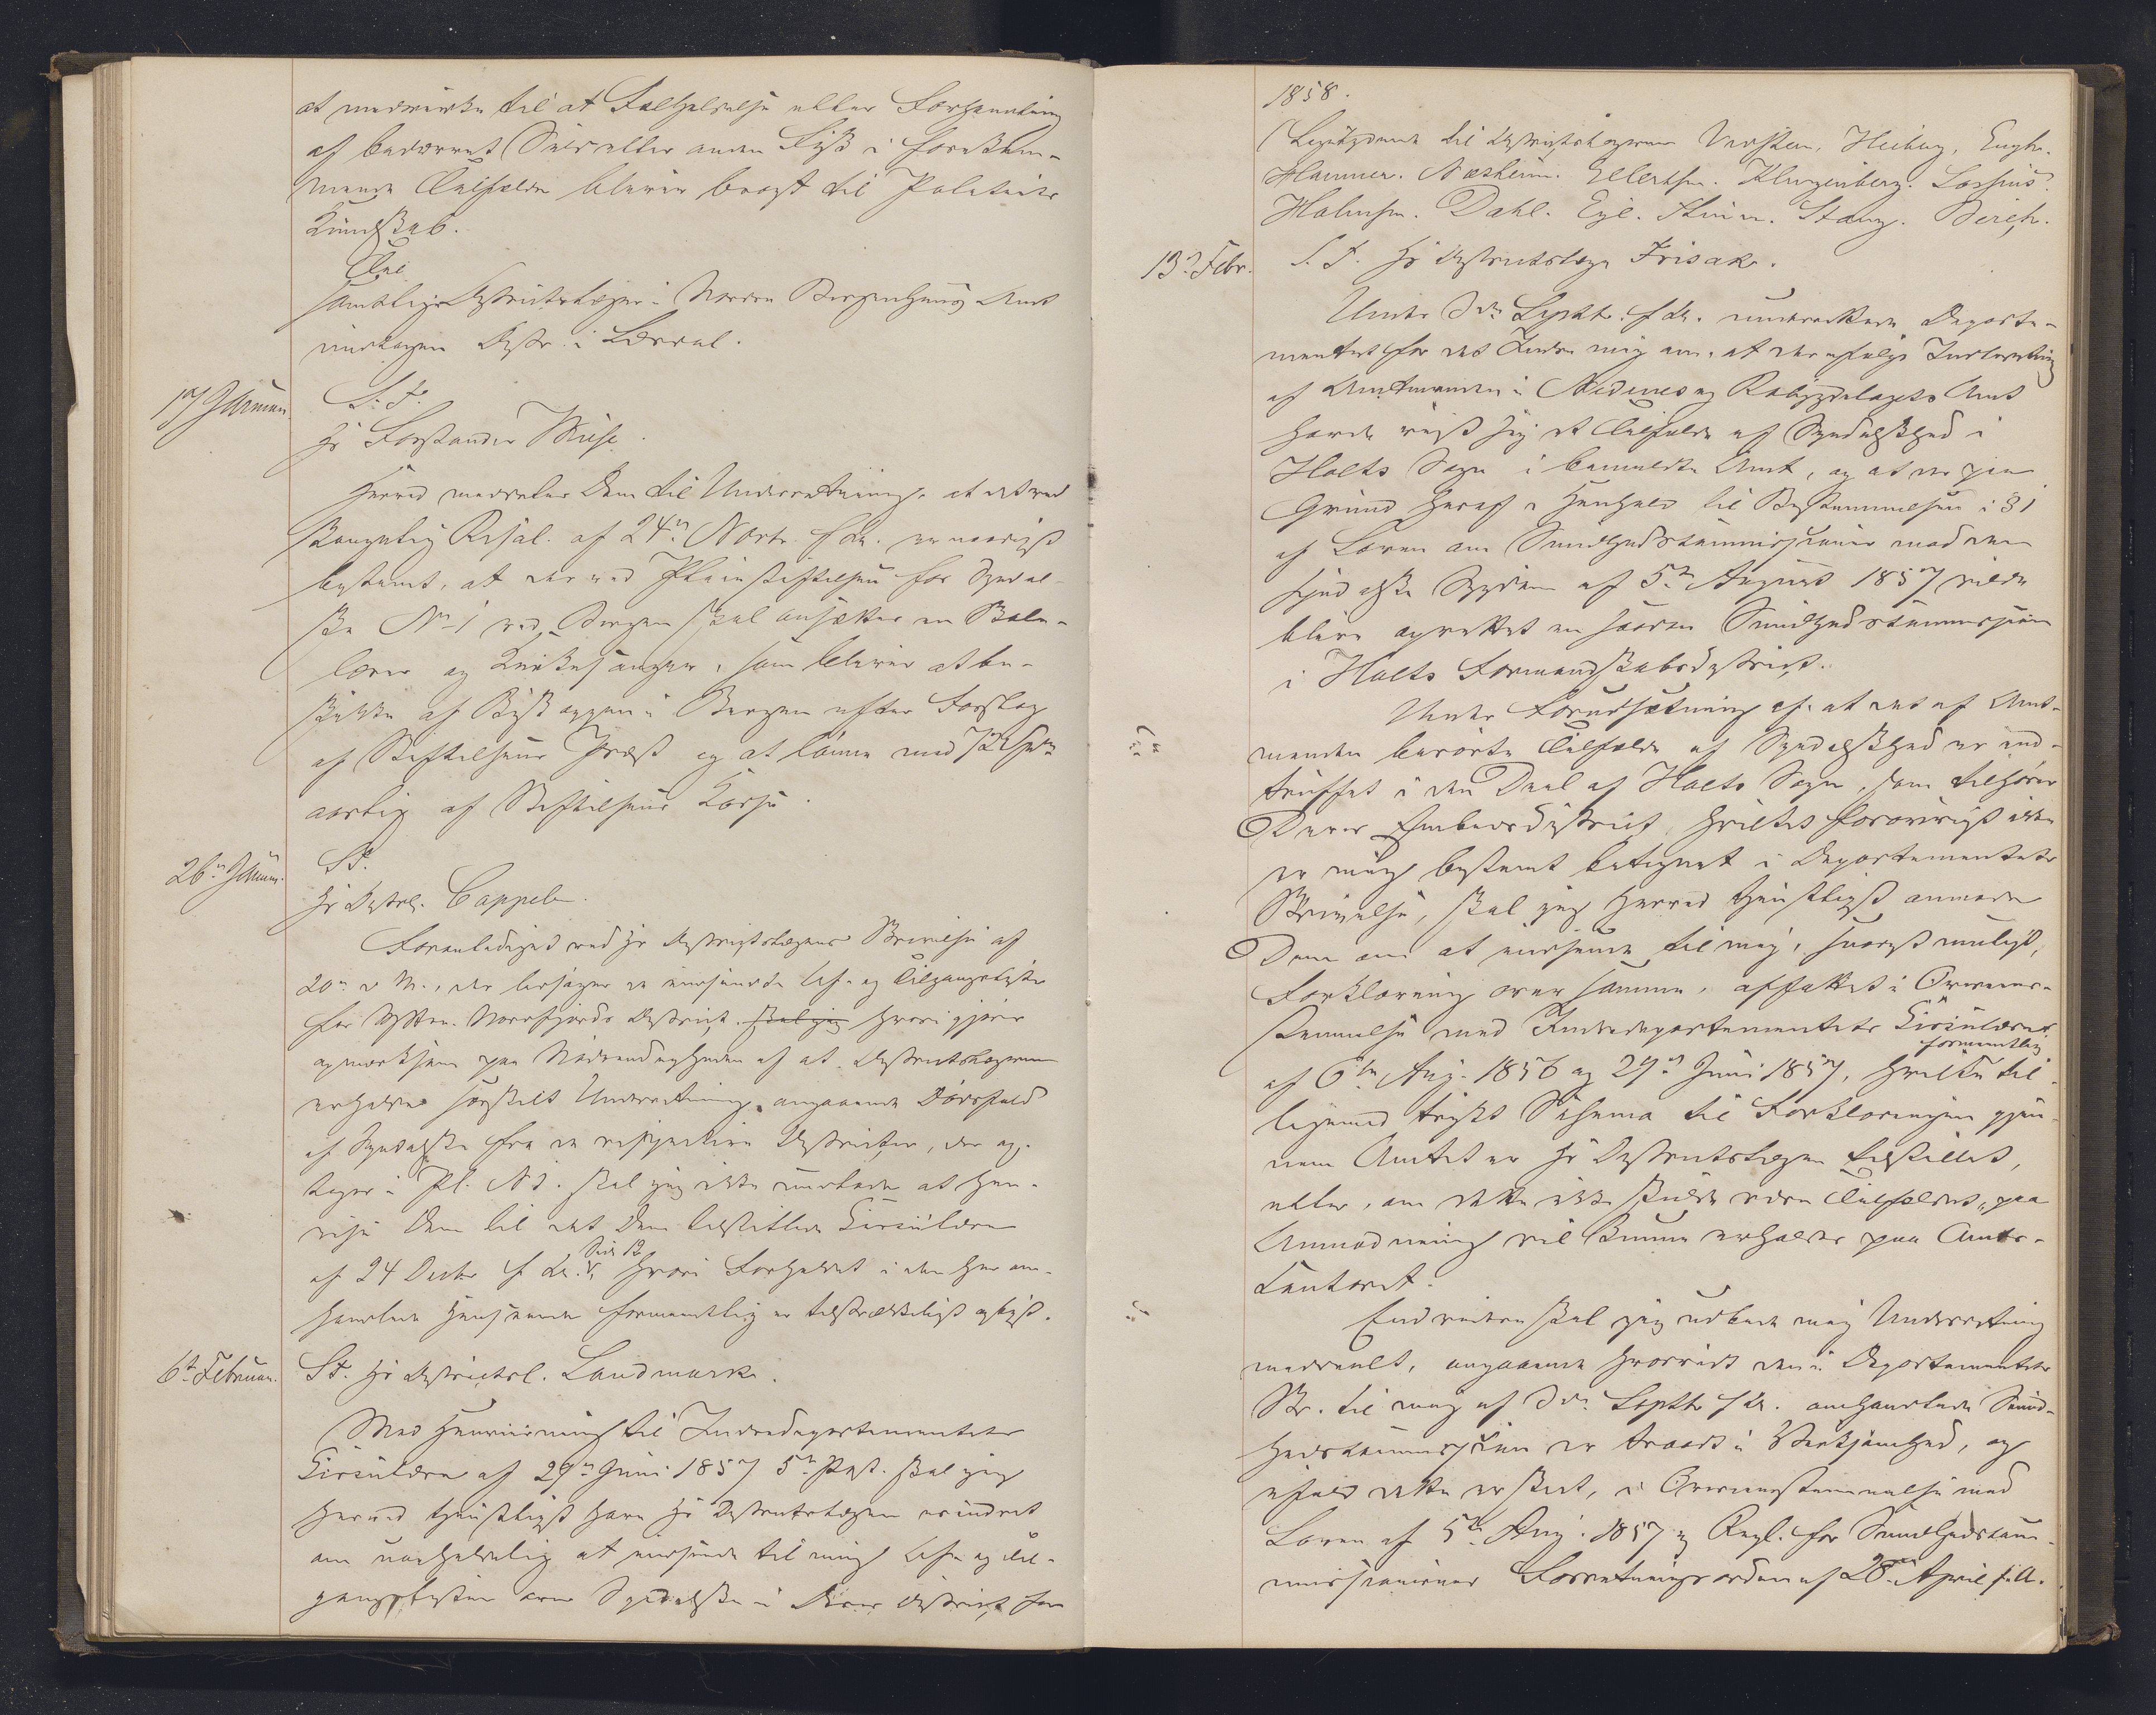 at medvirke til at Falholdelse eller Forhandling
af bedærvet Sild eller anden Fisk i forekom-
mende Tilfælde bliver bragt til Politiets
Kundskab.
Til
samtlige Districtslæger i Nordre Bergenhuus Amt
undtagen Distr. i Lærdal.
17 Januar.
S. T.
Hr Forstander Wiese.
Herved meddeles Dem til Underretning, at det ved
Kongelig Resol. af 24de Novbr. f. A. er naadigst
bestemt, at der ved Pleiestiftelsen for Spedal-
ske No 1 ved Bergen skal ansættes en Skole-
lærer og Kirkesanger, som bliver at be-
skikke af Biskoppen i Bergen efter Forslag
af Stiftelsens Præst og at lønne med
aarlig af Stiftelsens Kasse.
26de Januar.
S. T.
Hr Distrl. Cappelen.
Foranlediget ved Hr Districtslægens Skrivelse af
20de d. M., der ledsagede de indsendte Af- og Tilgangslister
for Ytter Nordfjords District, skal jeg hvori gjøres
opmærksom paa Nødvendigheden af at Districtslægerne
erholder særskilt Underretning angaaende Dødsfald
af Spedalske fra de respective Districter, der op-
tages i Pl. No 1. skal jeg ikke undlade at hen-
vise Dem til det Dem tilstillede Circulære
af 24 Decbr f. A. Side 12, hvori Forholdet i den her om-
handlede Henseende formentlig er tilstrækkeligt oplyst.
6te Februar.
S. T. Hr Districtsl. Landmark.
Med Henviisning til Indredepartementets
Circulære af 29de Juni 1857 5te Post. skal jeg
herved tjenstligst have Hr Districtslægen erindret
om uopholdelig at indsende til mig Af- og Til-
gangslisten over Spedalske i Deres District for
1858.
(Ligelydende til Districtslægerne Heiberg, Engh.
Hammer. Næsheim. Ellertsen. Klingenberg. Lossius.
Holmsen. Dahl. Egil. Stang. Berg.
13de Febr.
S. T. Hr Districtslæge Frisak.
Under 3die Septbr. f. A. underrettede Departe-
mentet for det Indre mig om, at der ifølge Indberetning
af Amtmanden i Nedenes og Robygdelagets Amt
havde viist sig et Tilfælde af Spedalskhed i
Holts Sogn i bemeldte Amt, og at der paa
Grund heraf i Henhold til Bestemmelsen i § 1
af Loven om Sundhedscommissioner mod den
spedalske Sygdom af 5te August 1857 vilde
blive oprettet en saadan Sundhedscommission
i Holts Formandskabsdistrict.
Under Forudsætning af, at det af Amt-
manden berørte Tilfælde af Spedalskhed er ind-
truffet i den Deel af Holts Sogn, som tilhører
Deres Embedsdistrict, hvilket forøvrigt ikke
er mig bestemt betegnet i Departementets
Skrivelse, skal jeg herved tjenstligst anmode
Dem om at indsende til mig, snarest muligt,
Forklaring over samme, affattet i Overeens-
stemmelse med Indredepartementets Circulærer
af 6te Aug. 1856 og 29de Juni 1857, hvilke til-
formentlig
ligemed trykt Schema til Forklaringen gjen-
nem Amtet er Hr Districtslægen tilstillet,
eller, om dette ikke skulde være Tilfældet, paa
Anmodning vil kunne erholdes paa Amts-
Contoret.
End videre skal jeg udbede mig Underretning
meddeelt, angaaende hvorvidt den i Departementets
Skr. til mig af 3die Septbr f. A. omhandlede Sund-
hedscommission er traadt i Virksomhed, og
ifald dette er skeet, i Overeensstemmelse med
Loven af 5te Aug. 1857 og Regl. for Sundhedscom-
missionernes Forretningsorden af 28de April s. A.